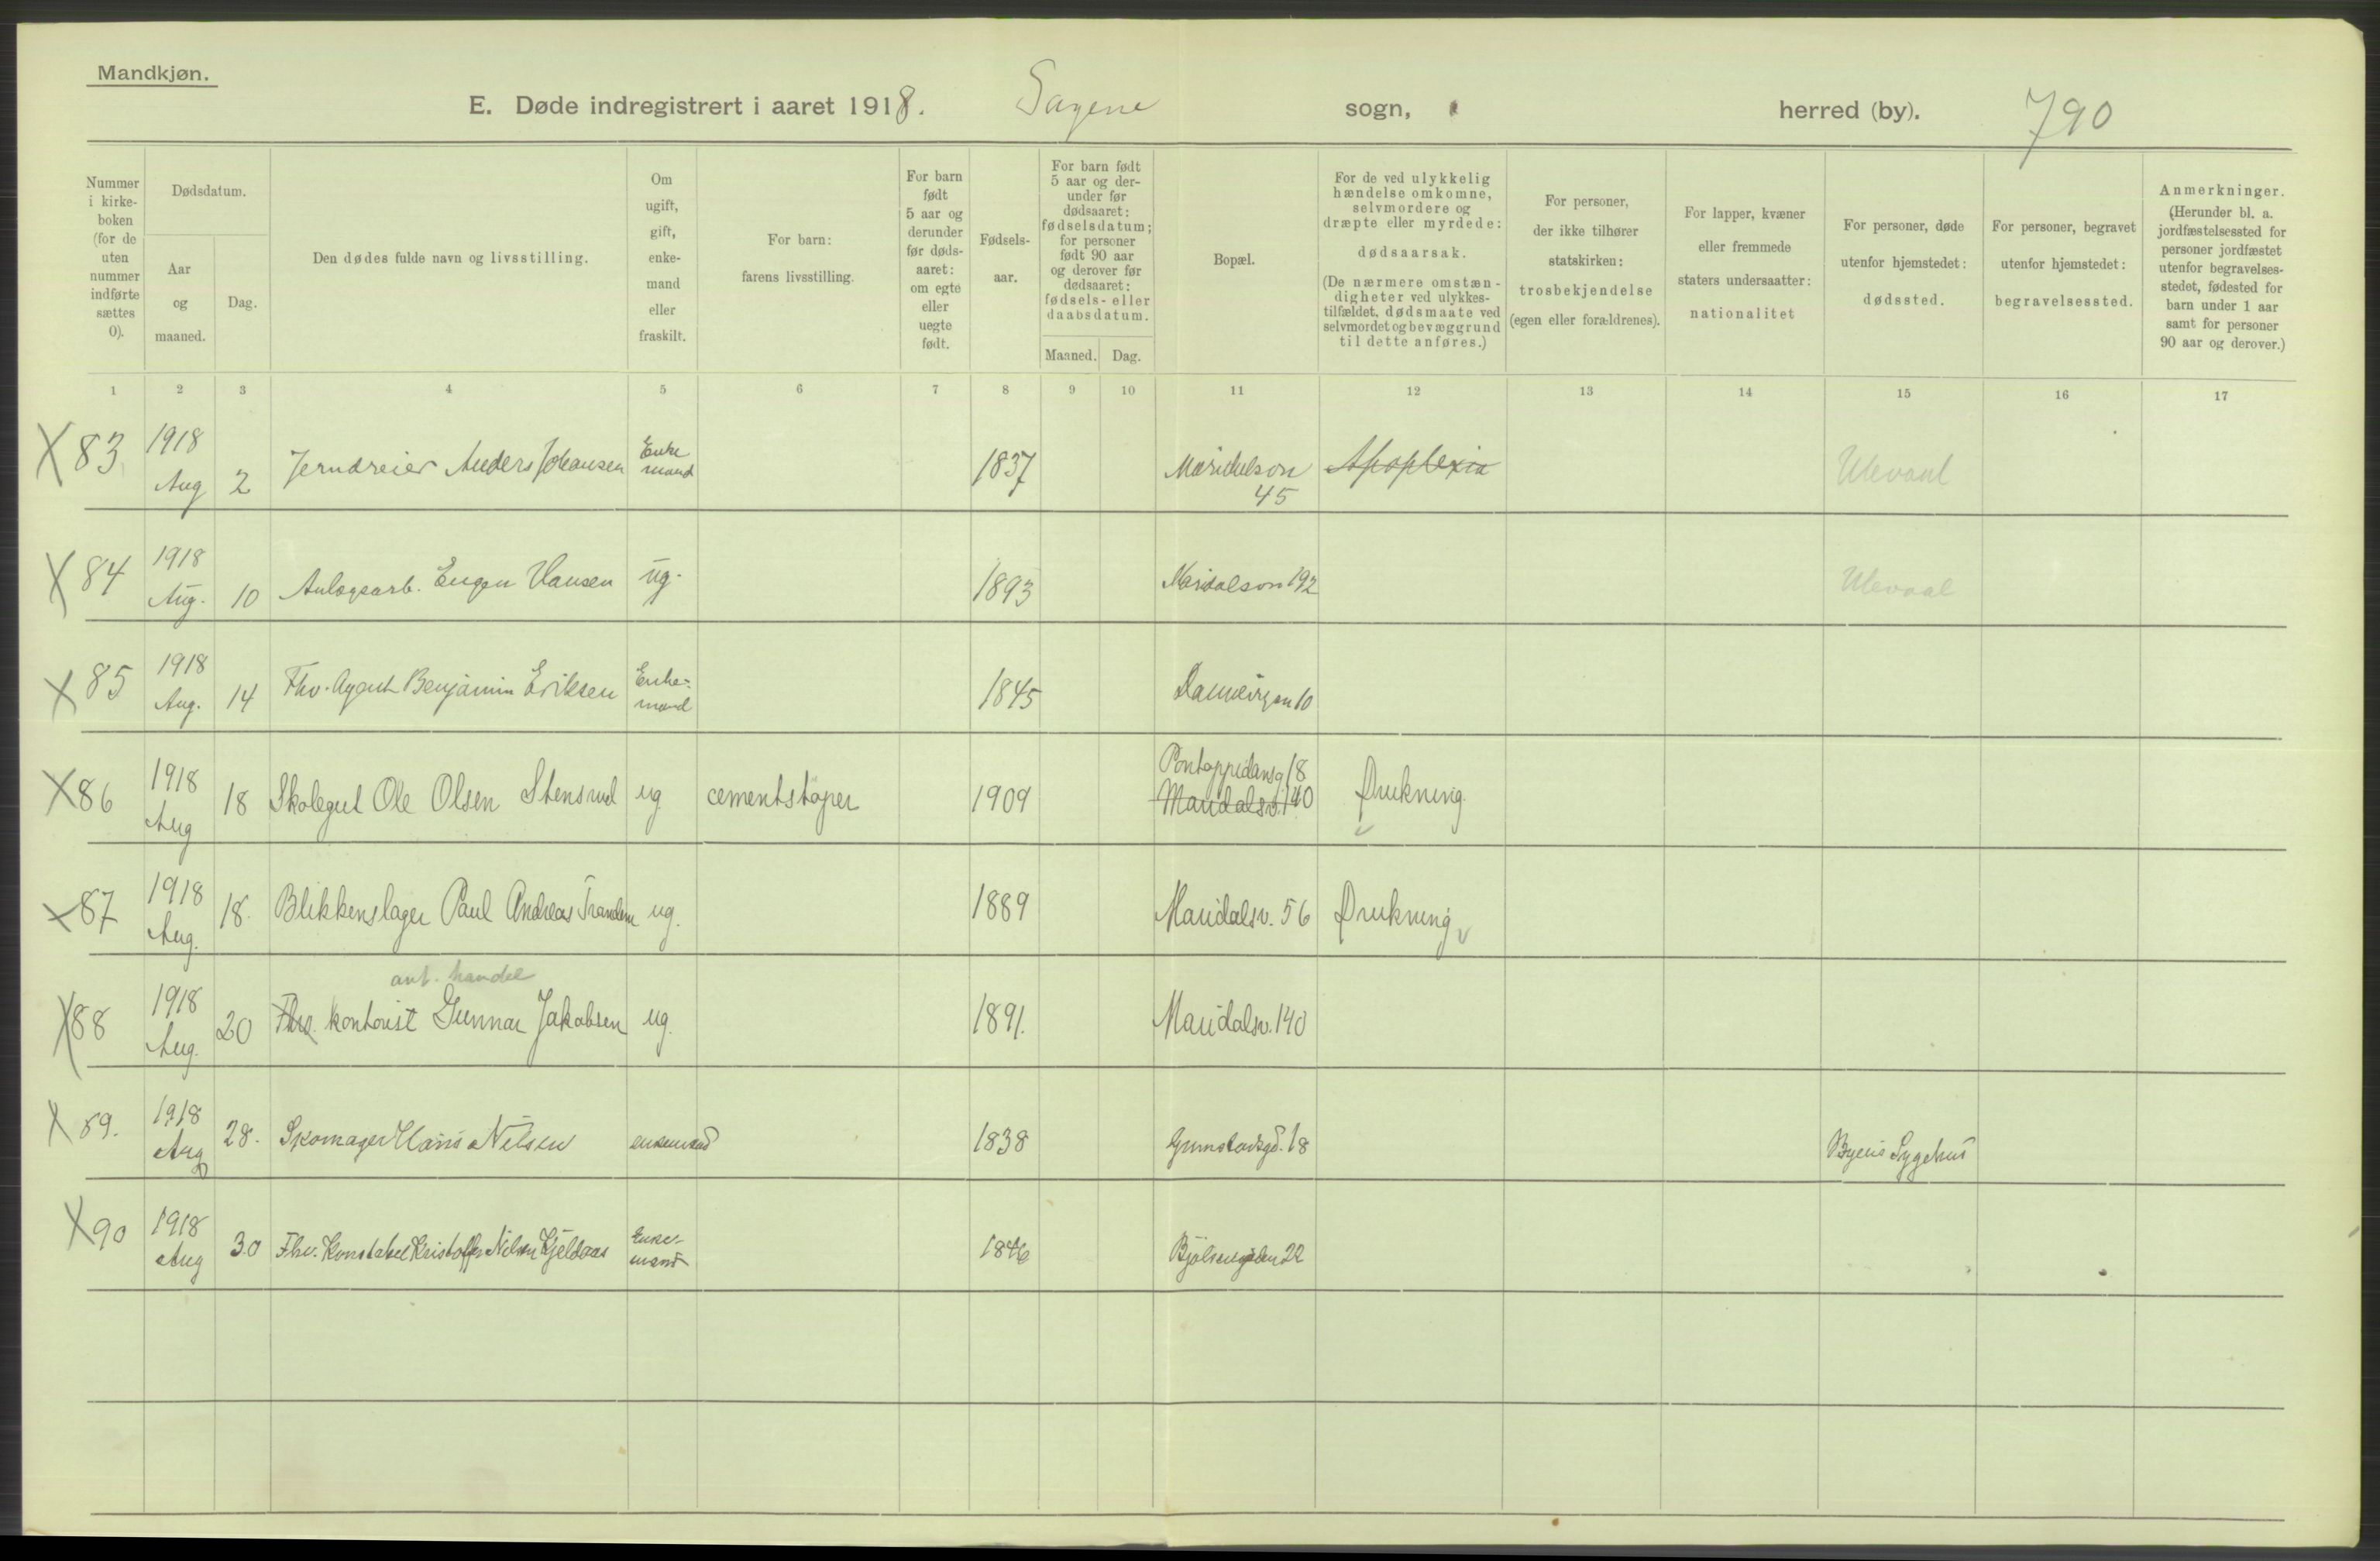 Mandkjøn.
E. Døde indregistrert i aaret 1918. Sagene sogn, herred (by). 790
Nummer i kirke-boken (for de uten nummer indførte sættes 0).
Dødsdatum.
Aar og maaned.
Dag.
Den dødes fulde navn og livsstilling.
Om ugift, gift, enke-mand eller fraskilt.
For barn: farens livsstilling.
For barn født 5 aar og derunder før døds-aaret: om egte eller uegte født.
Fødsels-aar.
For barn født 5 aar og der-under før dødsaaret: fødselsdatum; for personer født 90 aar og derover før dødsaaret: fødsels- eller daabsdatum.
Maaned. Dag.
Bopæl.
For de ved ulykkelig hændelse omkomne, selvmordere og dræpte eller myrdede: dødsaarsak. (De nærmere omstæn-digheter ved ulykkes-tilfældet, dødsmaate ved selvmordet og bevæggrund til dette anføres.)
For personer, der ikke tilhører statskirken: trosbekjendelse (egen eller forældrenes).
For lapper, kvæner eller fremmede staters undersaatter: nationalitet
For personer, døde utenfor hjemstedet: dødssted.
For personer, begravet utenfor hjemstedet: begravelsessted.
Anmerkninger. (Herunder bl. a. jordfæstelsessted for personer jordfæstet utenfor begravelses-stedet, fødested for barn under 1 aar samt for personer 90 aar og derover.)
1 2 3 4 5 6 7 8 9 10 11 12 13 14 15 16 17
X 83 1918 Aug 2 Jerndreier Anders Johansen Enke mand 1837 Maridalson 45 Apoplexia Ulevaal
X 84 1918 Aug. 10 Anlægsarb. Eugen Hansen ug. 1893 Maridalson 192 Ulevaal
X 85 1918 Aug. 14 Fhv. Agent Benjamin Eriksen Enke-mand 1845 10
X 86 1918 Aug 18 Skolegut Ole Olsen Stensrud ug cementstøper 1909 Pontoppidansg 18 Maridalsv. 140 Drukning
X 87 1918 Aug. 18. Blikkenslager Paul Andreas Trandem ug. 1889 Maridalsv. 56 Drukning
ant. handel
X 88 1918 Aug. 20 Fhv. kontorist Gunnar Jakobsen ug. 1891. Maridalsv. 140
X 89. 1918 Aug 28. Skomager Hans Nilsen enkemand 1838 Grimstadsgd. 18 Byens Sygehus
X 90 1918 Aug 30 Fhv. Konstabel Kristoffer Nilsen Kjeldaas Enke-mand 1846 Bjølsengaden 22